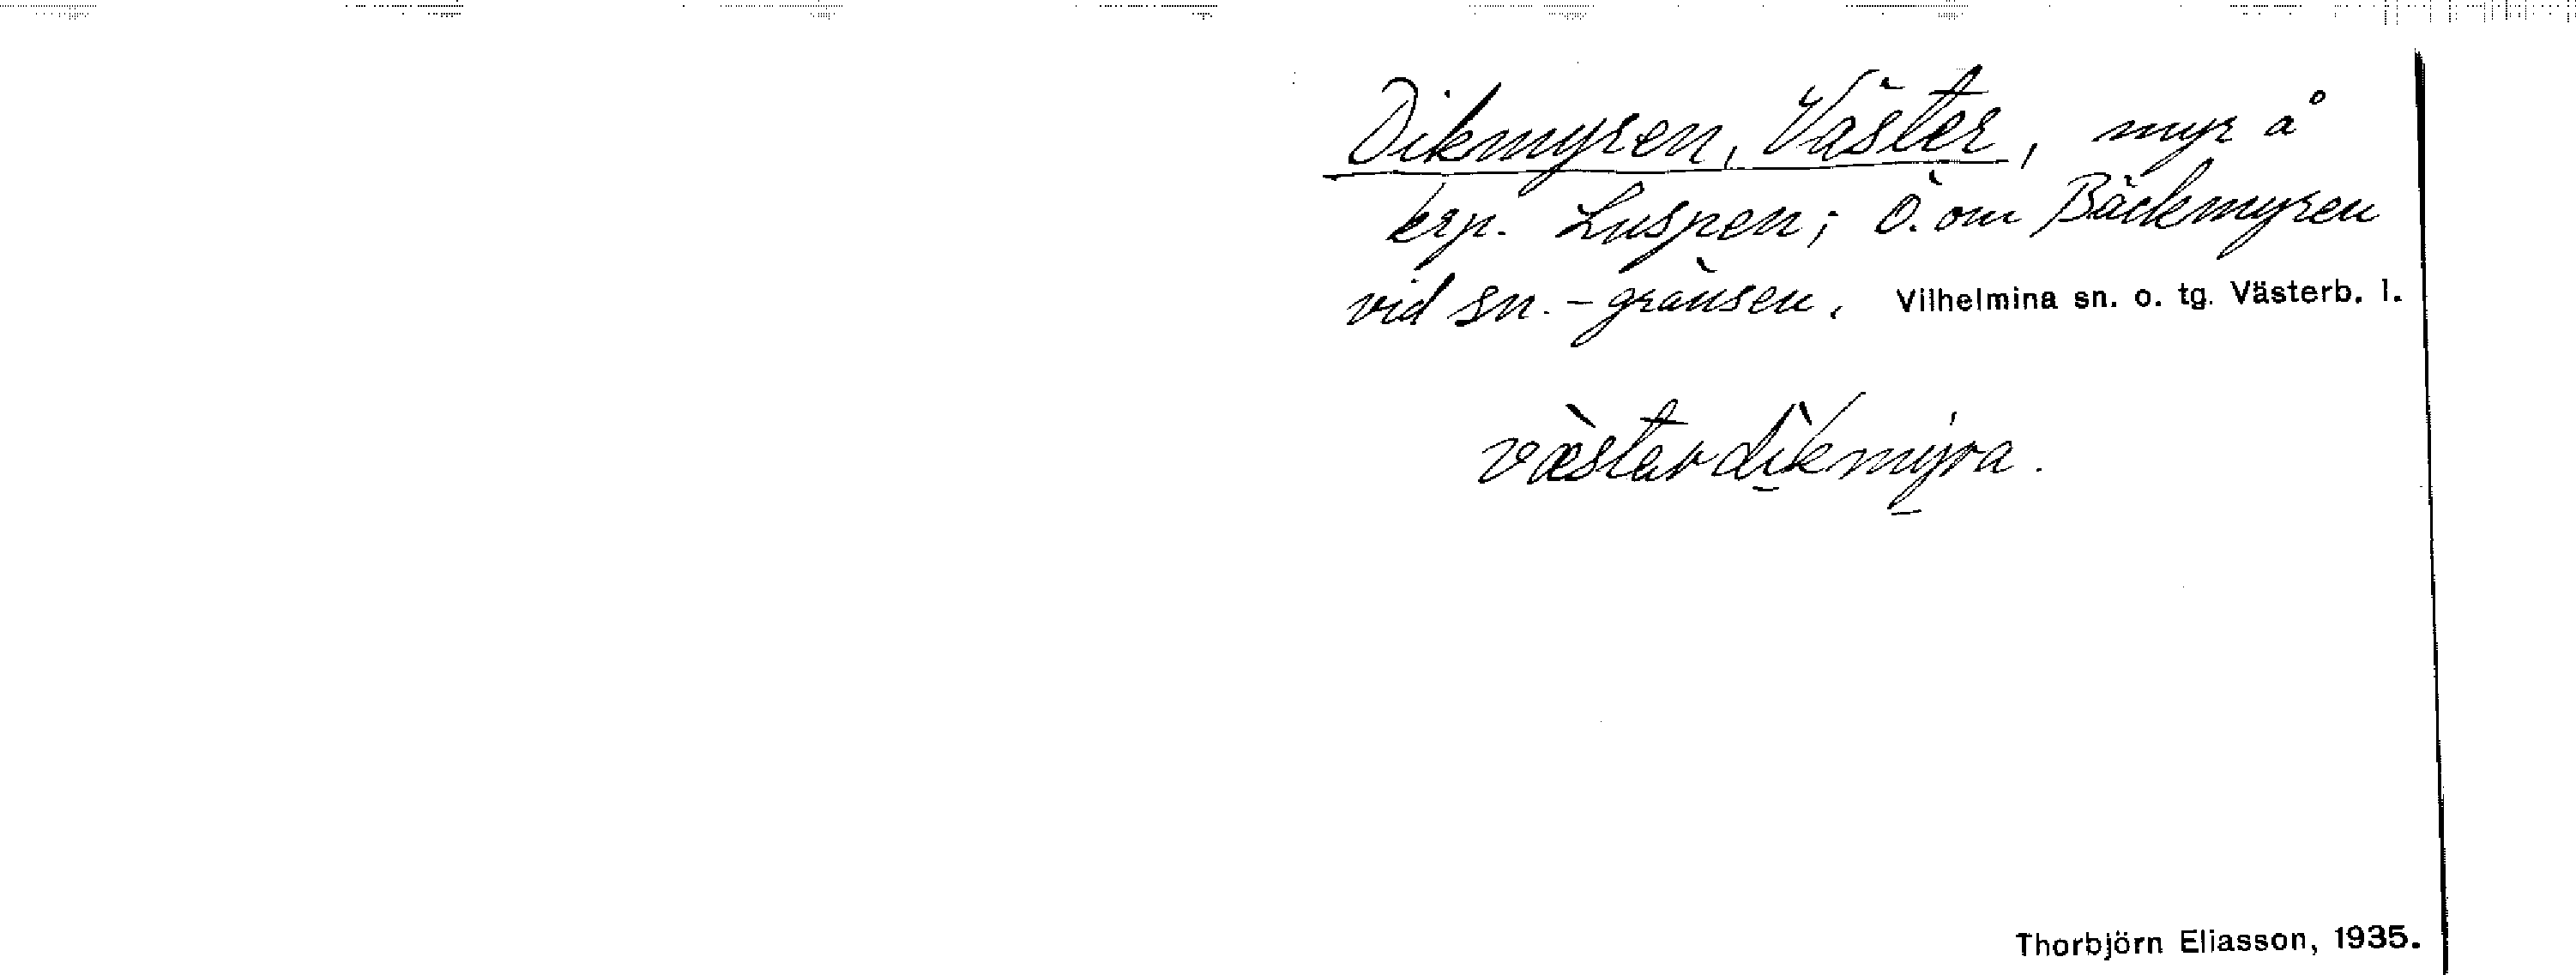 Dikmyren, Väster, myr å
krp. Luspen; Ö. om Bäckmyren
vid sn.-gränsen. Vilhelmina sn. o. tg. Västerb. l.
væ̀stardìkmy̱ra.
Thorbjörn Eliasson, 1935.